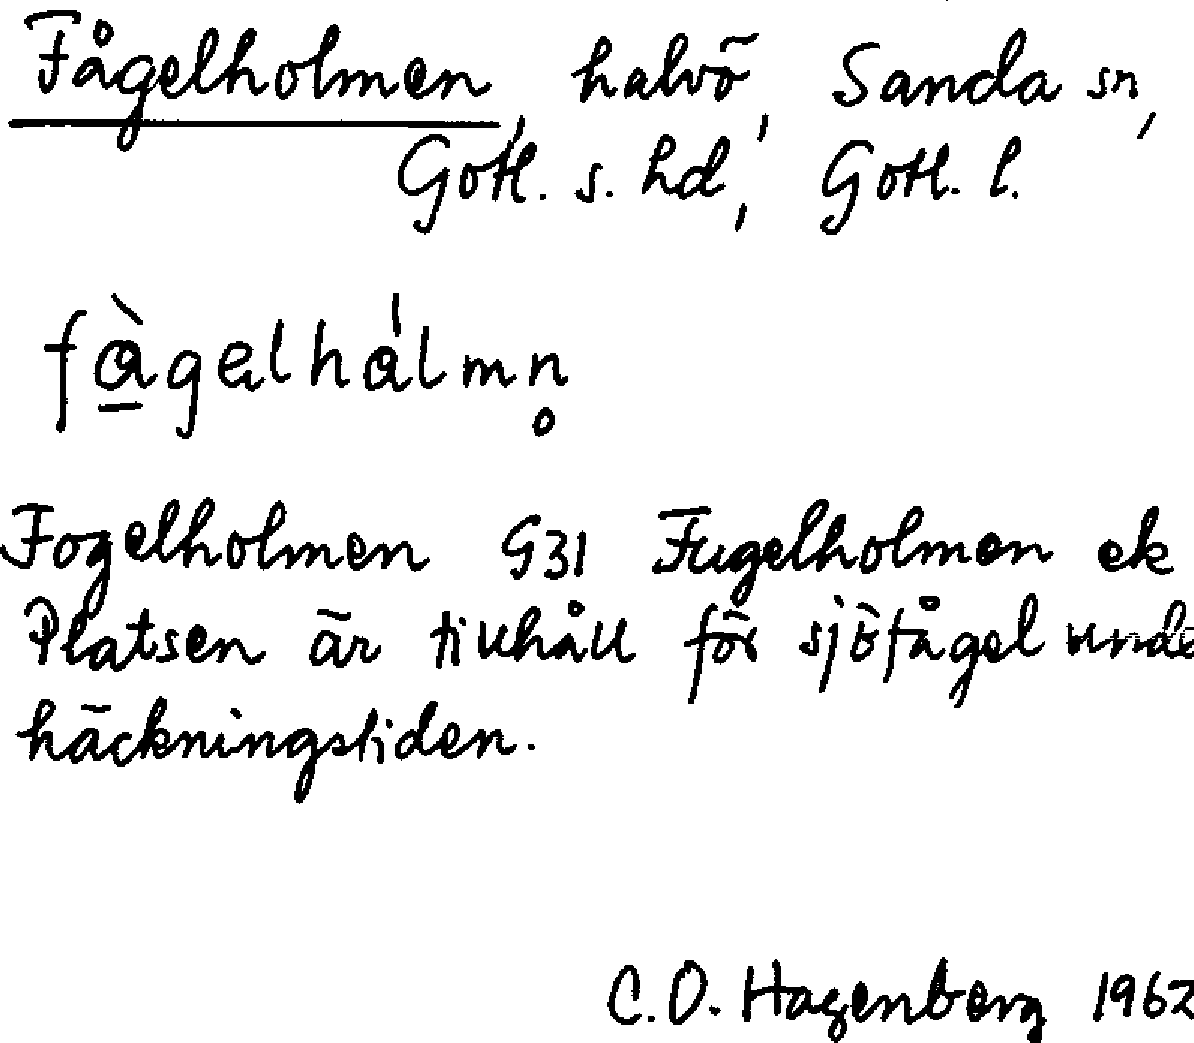 Fågelholmen, halvö, Sanda sn,
Gotl. s. hd, Gotl. l.
Fogelholmen G31 Fugelholmen ek
Platsen är tillhåll för sjöfågel unde
häckningstiden.
C.O. Hagenberg 1962